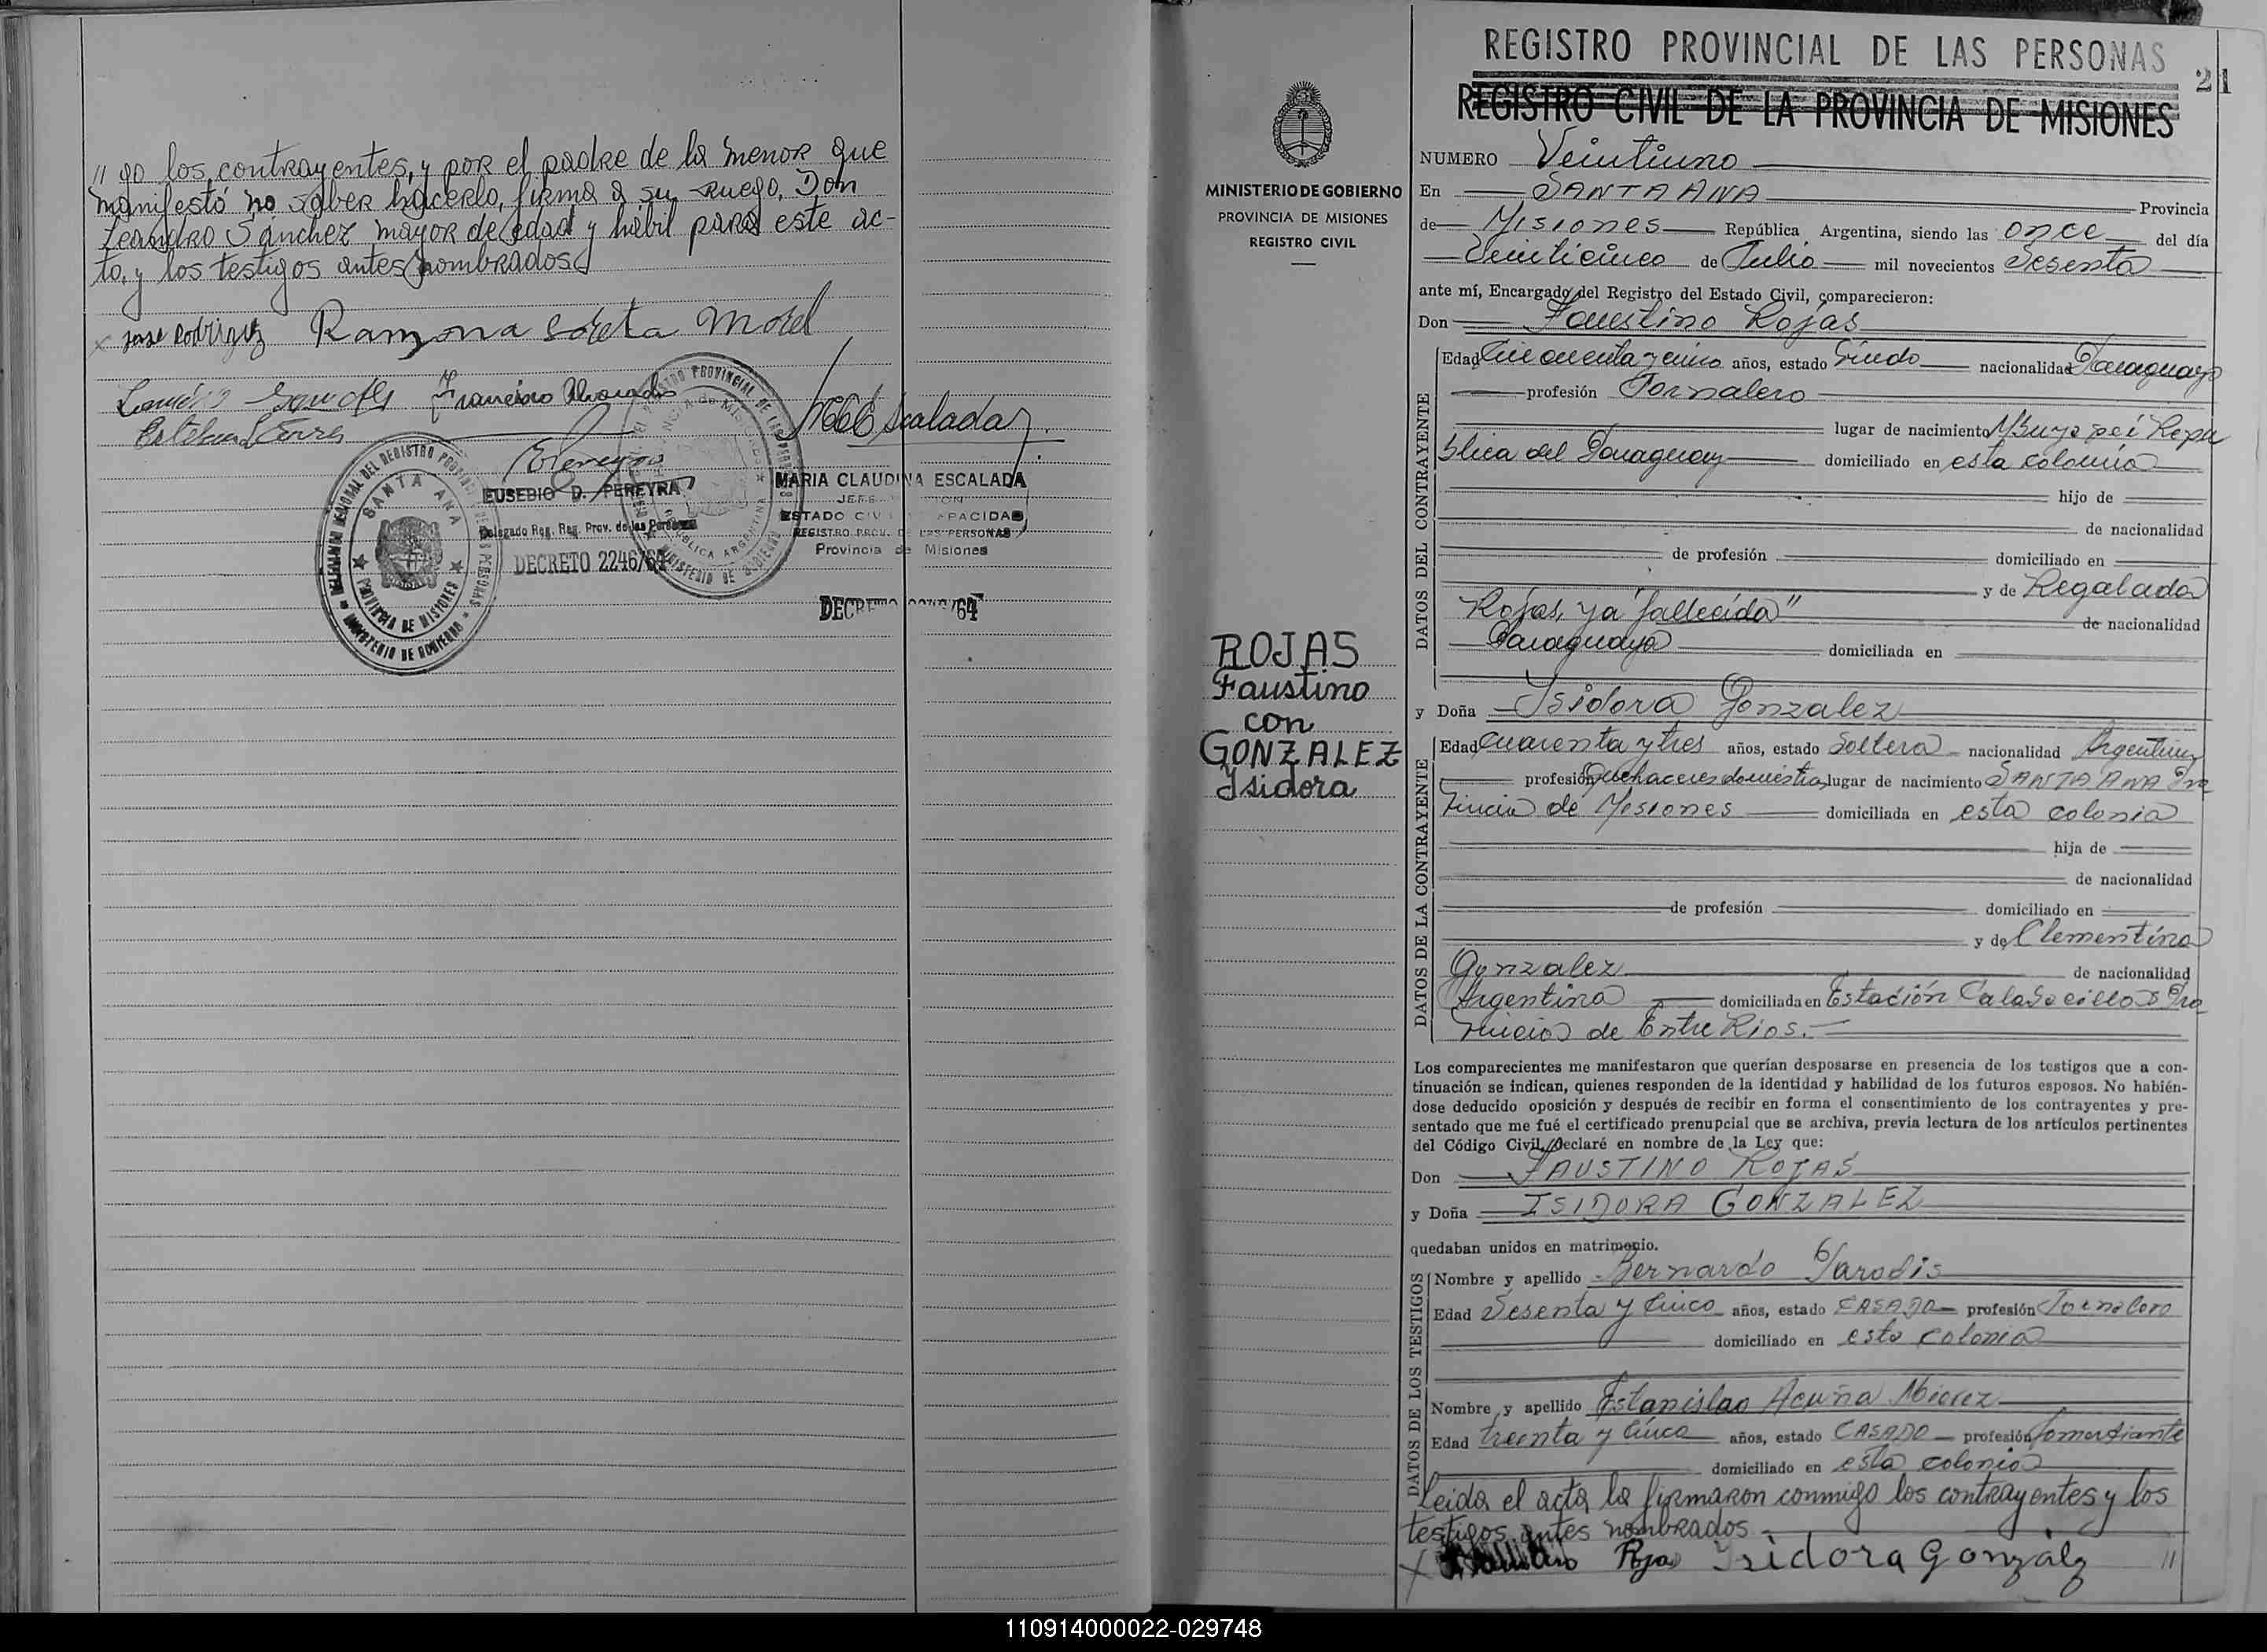 "go los contrayentes, y por el padre de la menor que
manifestó no saber hacerlo, firma a su ruego, Don
Leandro Sánchez mayor de edad y hábil para este ac-
to, y los testigos antes nombrados
x Jose Rodriguez Ramona Soreta Morel
Francisco Alvarado
Esteban
MEscalada
DELEGACION REGIONAL DEL REGISTRO PROVINCIAL DE LAS PERSONAS
SANTA ANA
PROVINCIA DE MISIONES
MINISTERIO DE GOBIERNO
EUSEBIO D. PEREYRA
Delegado Reg. Reg. Prov. de las Personas
DECRETO 2246/64
REGISTRO PROVINCIAL DE LAS PERSONAS
PROVINCIA de MISIONES
REPUBLICA ARGENTINA
MINISTERIO DE GOBIERNO
MARIA CLAUDINA ESCALADA
JEFE
ESTADO CIV PACIDAD
REGISTRO PROV. DE LAS PERSONAS
Provincia de Misiones
DECRETO 2246/64
MINISTERIO DE GOBIERNO
PROVINCIA DE MISIONES
REGISTRO CIVIL
ROJAS
Faustino
con
GONZALEZ
Ysidora
REGISTRO PROVINCIAL DE LAS PERSONAS
21
REGISTRO CIVIL DE LA PROVINCIA DE MISIONES
NUMERO Veintiuno
En SANTA ANA Provincia
de Misiones República Argentina, siendo las once del día
Veinticinco de Julio mil novecientos Sesenta
ante mí, Encargado del Registro del Estado Civil, comparecieron:
Don Faustino Rojas
DATOS DEL CONTRAYENTE
Edad Cincuenta y cinco años, estado Viudo nacionalidad Paraguayo
profesión Jornalero
lugar de nacimiento Mbuyapeí Repu
blica del Paraguay domiciliado en esta colonia
hijo de
de nacionalidad
de profesión domiciliado en
y de Regalada
Rojas, ya fallecida" de nacionalidad
Paraguaya domiciliada en
y Doña Ysidora Gonzalez
DATOS DE LA CONTRAYENTE
Edad Cuarenta y tres años, estado Soltera nacionalidad Argentina
profesión Quehaceres domésticos lugar de nacimiento SANTA ANA Pro
vincia de Misiones domiciliada en esta colonia
hija de
de nacionalidad
de profesión domiciliado en
y de Clementina
Gonzalez de nacionalidad
Argentina domiciliada en Estación Calabacillos Pro
vincia de Entre Rios.
Los comparecientes me manifestaron que querían desposarse en presencia de los testigos que a con-
tinuación se indican, quienes responden de la identidad y habilidad de los futuros esposos. No habién-
dose deducido oposición y después de recibir en forma el consentimiento de los contrayentes y pre-
sentado que me fué el certificado prenupcial que se archiva, previa lectura de los artículos pertinentes
del Código Civil, Declaré en nombre de la Ley que:
Don FAUSTINO ROJAS
y Doña ISIDORA GONZALEZ
quedaban unidos en matrimonio.
DATOS DE LOS TESTIGOS
Nombre y apellido Bernardo Parodis
Edad Sesenta y Cinco años, estado CASADO profesión Jornalero
domiciliado en esta colonia
Nombre y apellido Estanislao Acuña
Edad treinta y Cinco años, estado CASADO profesión Comerciante
domiciliado en esta colonia
Leida el acta la firmaron conmigo los contrayentes y los
testigos antes nombrados
x Rojas Isidora Gonzalz "
110914000022-029748